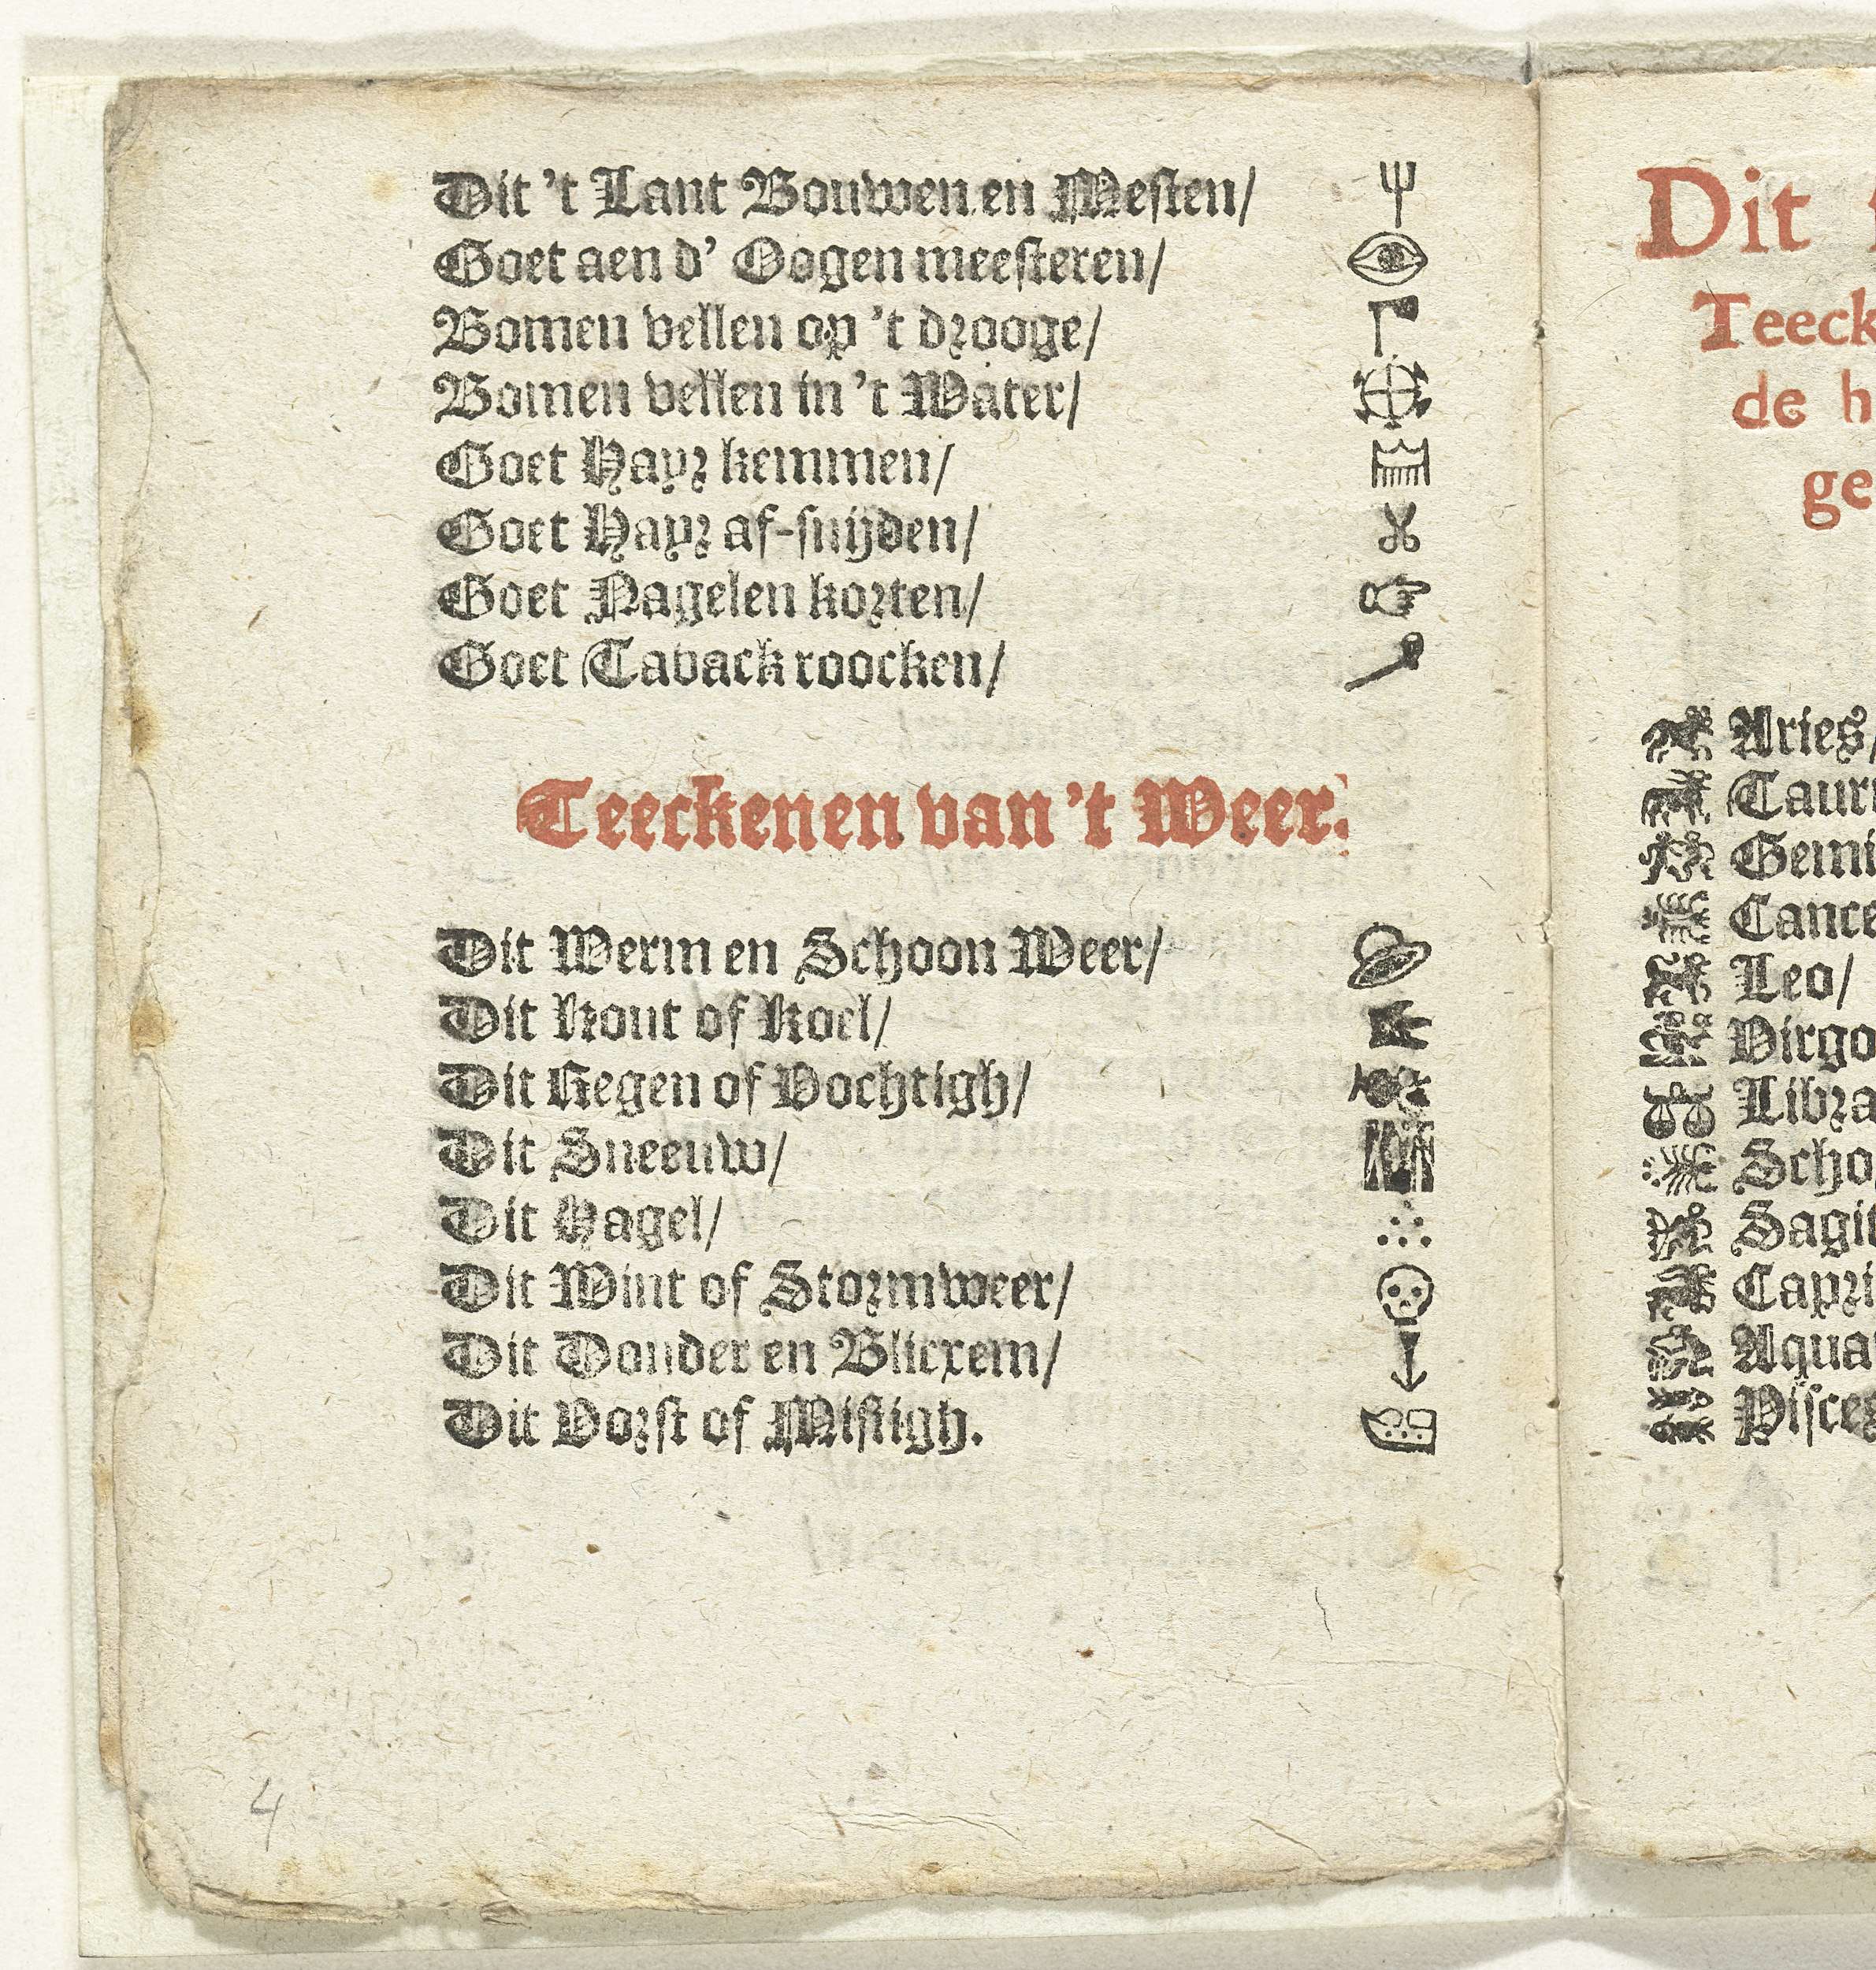 Dit 't Lant Bouwen en Mesten/
Goet aen d' Oogen meesteren/
Bomen vellen op 't drooge/
Bomen vellen in 't Water/
Goet Hayr kemmen/
Goet Hayr af-snijden/
Goet Nagelen korten/
Goet Taback roocken/
Teeckenen van 't Weer.
Dit Werm en Schoon Weer/
Dit Kout of Koel/
Dit Regen of Vochtigh/
Dit Sneeuw/
Dit Hagel/
Dit Wint of Stormweer/
Dit Donder en Blicxem/
Dit Vorst of Mistigh.
4
Dit
Teeck
de h
ge
Aries/
Tauri
Gemi
Cance
Leo/
Virgo
Libra
Scho
Sagit
Capri
Aqua
Pisces